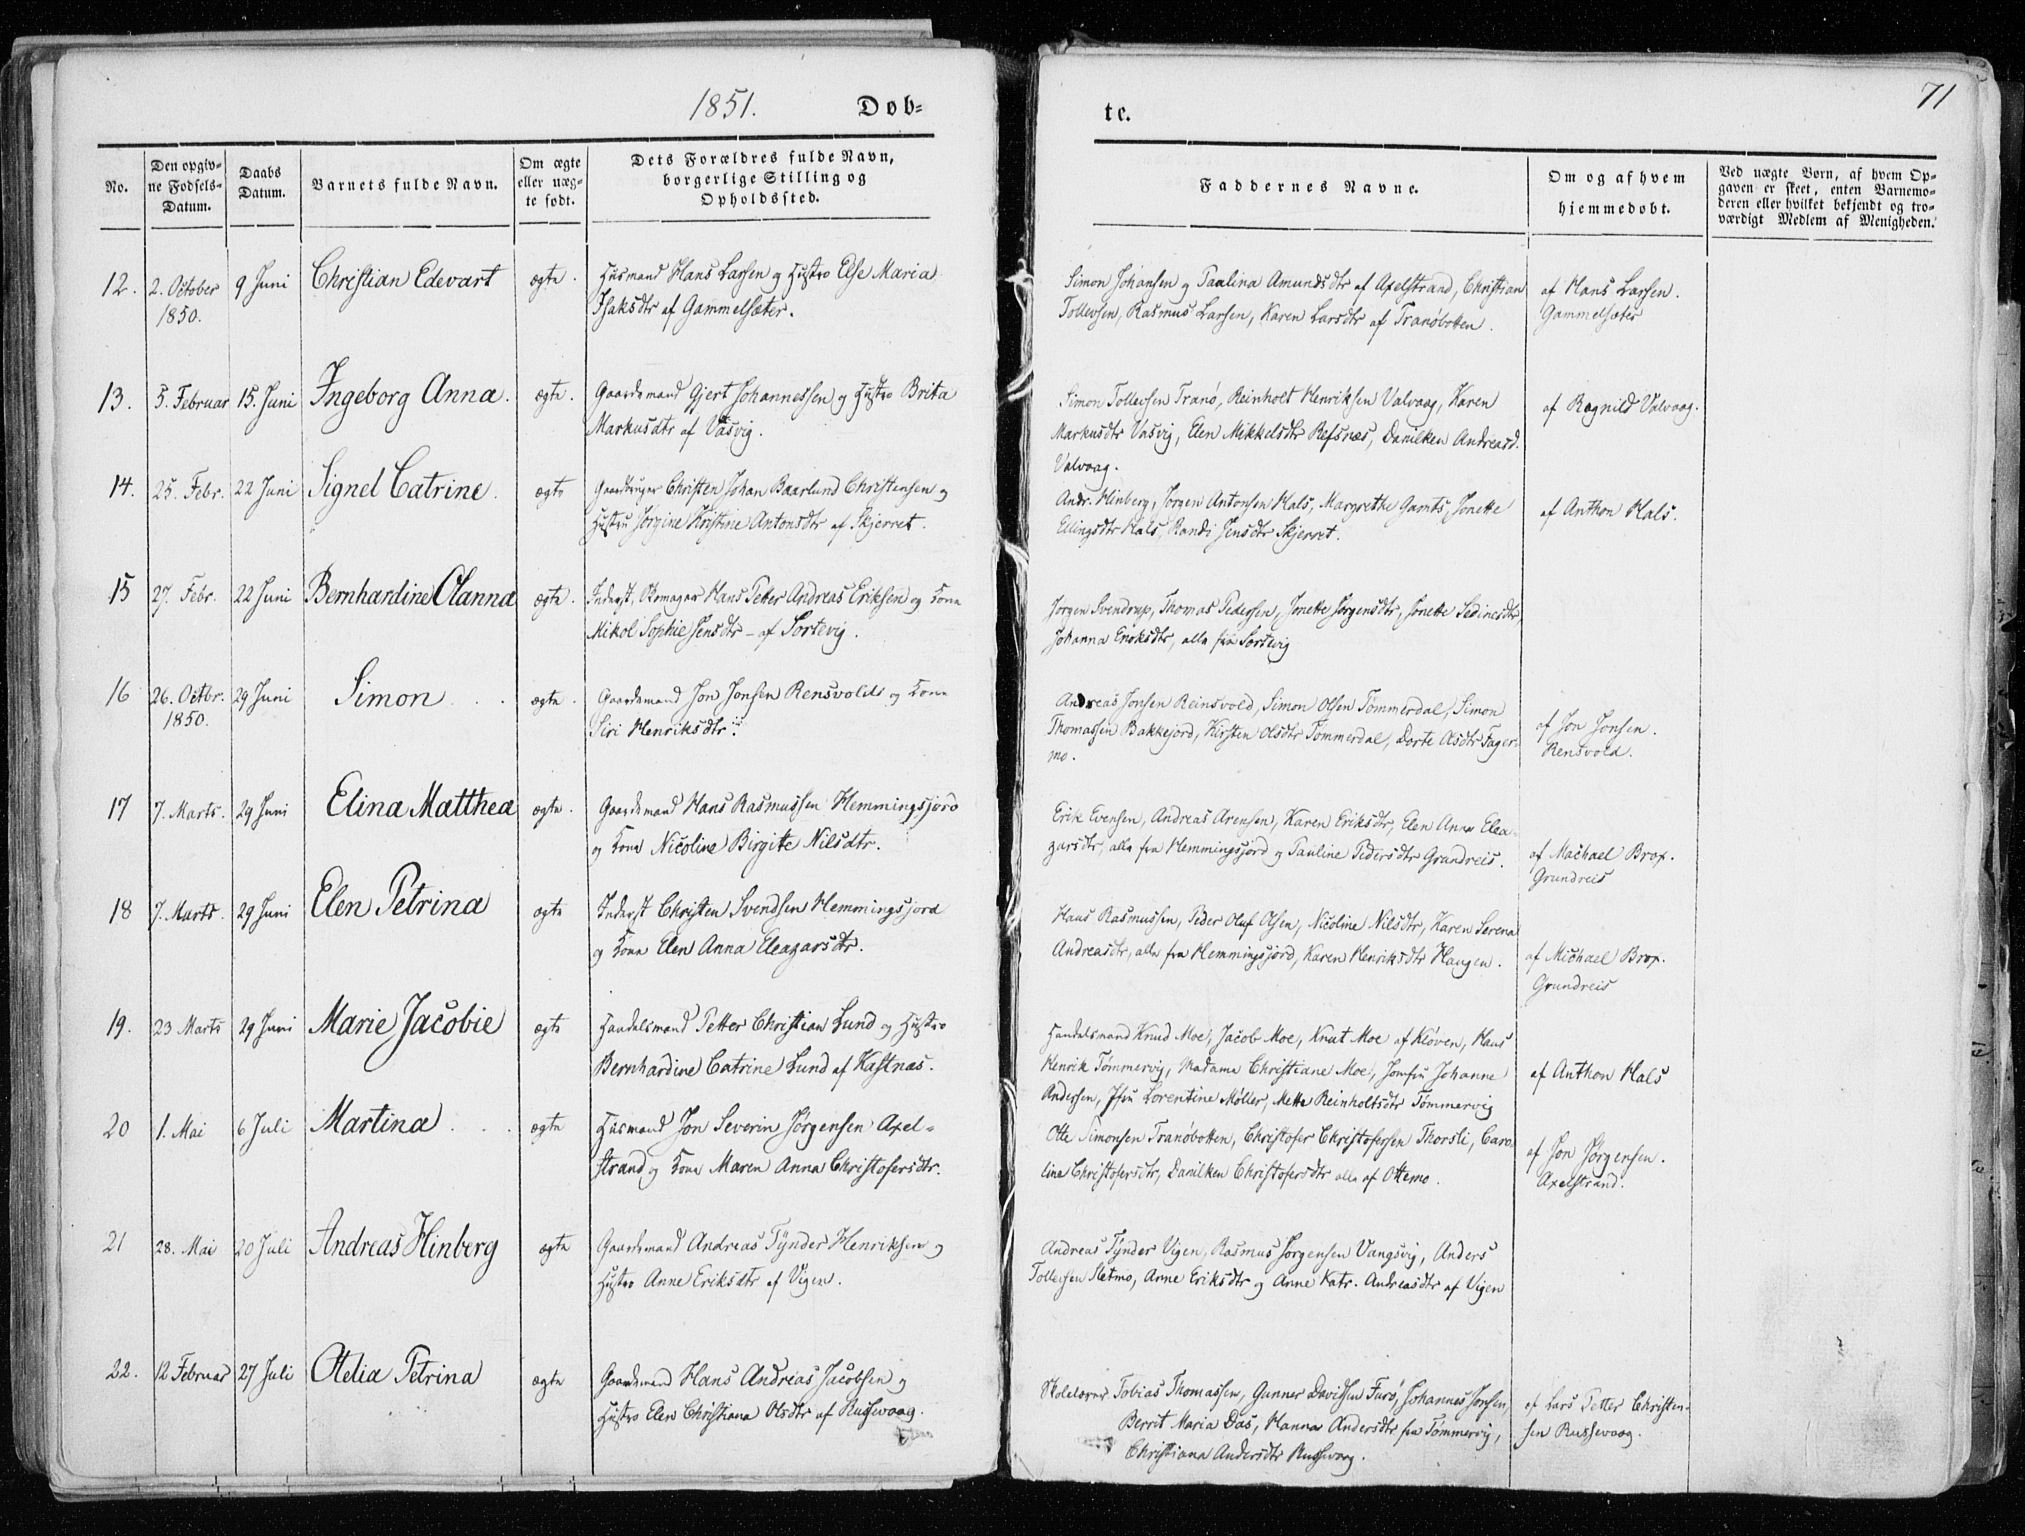 1851. Døb-
te. 71
No. Den opgiv- ne Fødsels- Datum. Daabs Datum. Barnets fulde Navn. Om ægte eller uæg- te født. Dets Forældres fulde Navn, borgerlige Stilling og Opholdssted. Faddernes Navne. Om og af hvem hjemmedøbt. Ved uægte Børn, af hvem Op- gaven er skeet, enten Barnemo- deren eller hvilket bekjendt og tro- værdigt Medlem af Menigheden.
12. 2. October 9 Juni Christian Edevart ægte. Husmand Hans Larsen og Hustro Else Maria
1850. Isaksdtr af Gammelsæter.
Simon Johansen og Paulina Amundsdtr af Axelstrand, Christian
Tollevsen, Rasmus Larsen, Karen Larsdtr af Tranøbotten.
af Hans Larsen.
Gammelsæter
13. 5. Februar 15. Juni Ingeborg Anna. ægte. Gaardmand Gjert Johannessen og Hustro Brita
Markusdtr af Vasvig.
Simon Tollevsen Tranø, Reinholt Henriksen Valvaag, Karen
Markusdtr Vasvig, Elen Mikkelsdtr Refsnæs, Danilken Andreasd.
Valvaag.
af Ragnild Valvaag.
14. 25. Febr. 22 Juni Signel Catrine. ægte Gaardbruger Christen Johan Baarlund Christensen og
Hustru Jørgine Kristine Antonsdtr af Skjerret.
Andr. Hinberg, Jørgen Antonsen Hals, Margrethe Gamts, Jonette
Ellingsdtr Hals, Randi Jensdtr Skjerret.
af Anthon Hals.
15 27. Febr. 22 Juni Bernhardine Olanna ægte. Inderst, Skomager Hans Petter Andreas Eriksen og Kone
Mikol Sophie Jensdtr - af Sortevig.
Jørgen Svendrup, Thomas Pedersen, Jonette Jørgensdtr, Jonette Sedinesdtr
Johanna Enoksdtr, alle fra Sortevig
16 26. Octbr. 29 Juni Simon ægte. Gaardmand Jon Jonsen Rensvolds og Kone
1850. Siri Henriksdtr.
Andreas Jonsen Reinsvold, Simon Olsen Tømmerdal, Simon
Thomassen Bakkejord, Kirsten Olsdtr Tømmerdal, Dorte Olsdtr Fager-
mo.
af Jon Jonsen.
Rensvold.
17 7. Marts. 29 Juni Elina Matthea ægte. Gaardmand Hans Rasmussen Hemmingsjord
og Kone Nicoline Birgite Nilsdtr.
Erik Evensen, Andreas Arensen, Karen Eriksdtr, Elen Anna Elea-
zarsdtr, alle fra Hemmingsjord og Pauline Pedersdtr Grundreis.
af Machael Brox.
Grundreis
18 7. Marts. 29 Juni Elen Petrina ægte Inderst Christen Svendsen Hemmingsjord
og Kone Elen Anna Eleazarsdtr.
Hans Rasmussen, Peder Oluf Olsen, Nicoline Nilsdtr, Karen Serena
Andreasdtr, alle fra Hemmingsjord, Karen Henriksdtr Haugen.
af Michael Brox.
Grundreis
19. 23 Marts 29 Juni Marie Jacobie ægte Handelsmand Petter Christian Lund og Hustro
Bernhardine Catrine Lund af Kastnæs.
Handelsmand Knud Moe, Jacob Moe, Knut Moe af Kløven, Hans
Henrik Tømmervig, Madame Christiane Moe, Jomfru Johanne
Andersen, Jfru Lorentine Møller, Mette Reinholtsdtr Tømmervig
af Anthon Hals
20 1. Mai 6 Juli Martina ægte Husmand Jon Severin Jørgensen Axel-
strand og Kone Maren Anna Christofersdtr.
Otte Simonsen Tranøbotten, Christofer Christofersen Thorsli, Caro-
line Christofersdtr, Danilken Christofersdtr alle af Ottemo.
af Jon Jørgensen.
Axelstrand.
21 28. Mai 20 Juli Andreas Hinberg ægte Gaardmand Andreas Tynder Henriksen og
Hustro Anne Eriksdtr af Vigen.
Andreas Tynder Vigen, Rasmus Jørgensen Vangsvig, Anders
Tollevsen Sletmo, Anne Eriksdtr og Anne Katr. Andreasdtr af Vigen
22. 12 Februar 27 Juli Otelia Petrina ægte Gaardmand Hans Andreas Jacobsen og
Hustro Elen Christiana Olsdtr af Russevaag.
Skolelærer Tobias Thomassen, Gunner Davidsen Furø, Johannes Jonsen,
Berrit Maria Das, Hanna Andersdtr fra Tømmervig,
Christiana Andersdtr Russevaag.
af Lars Petter Christen-
sen Russevaag.